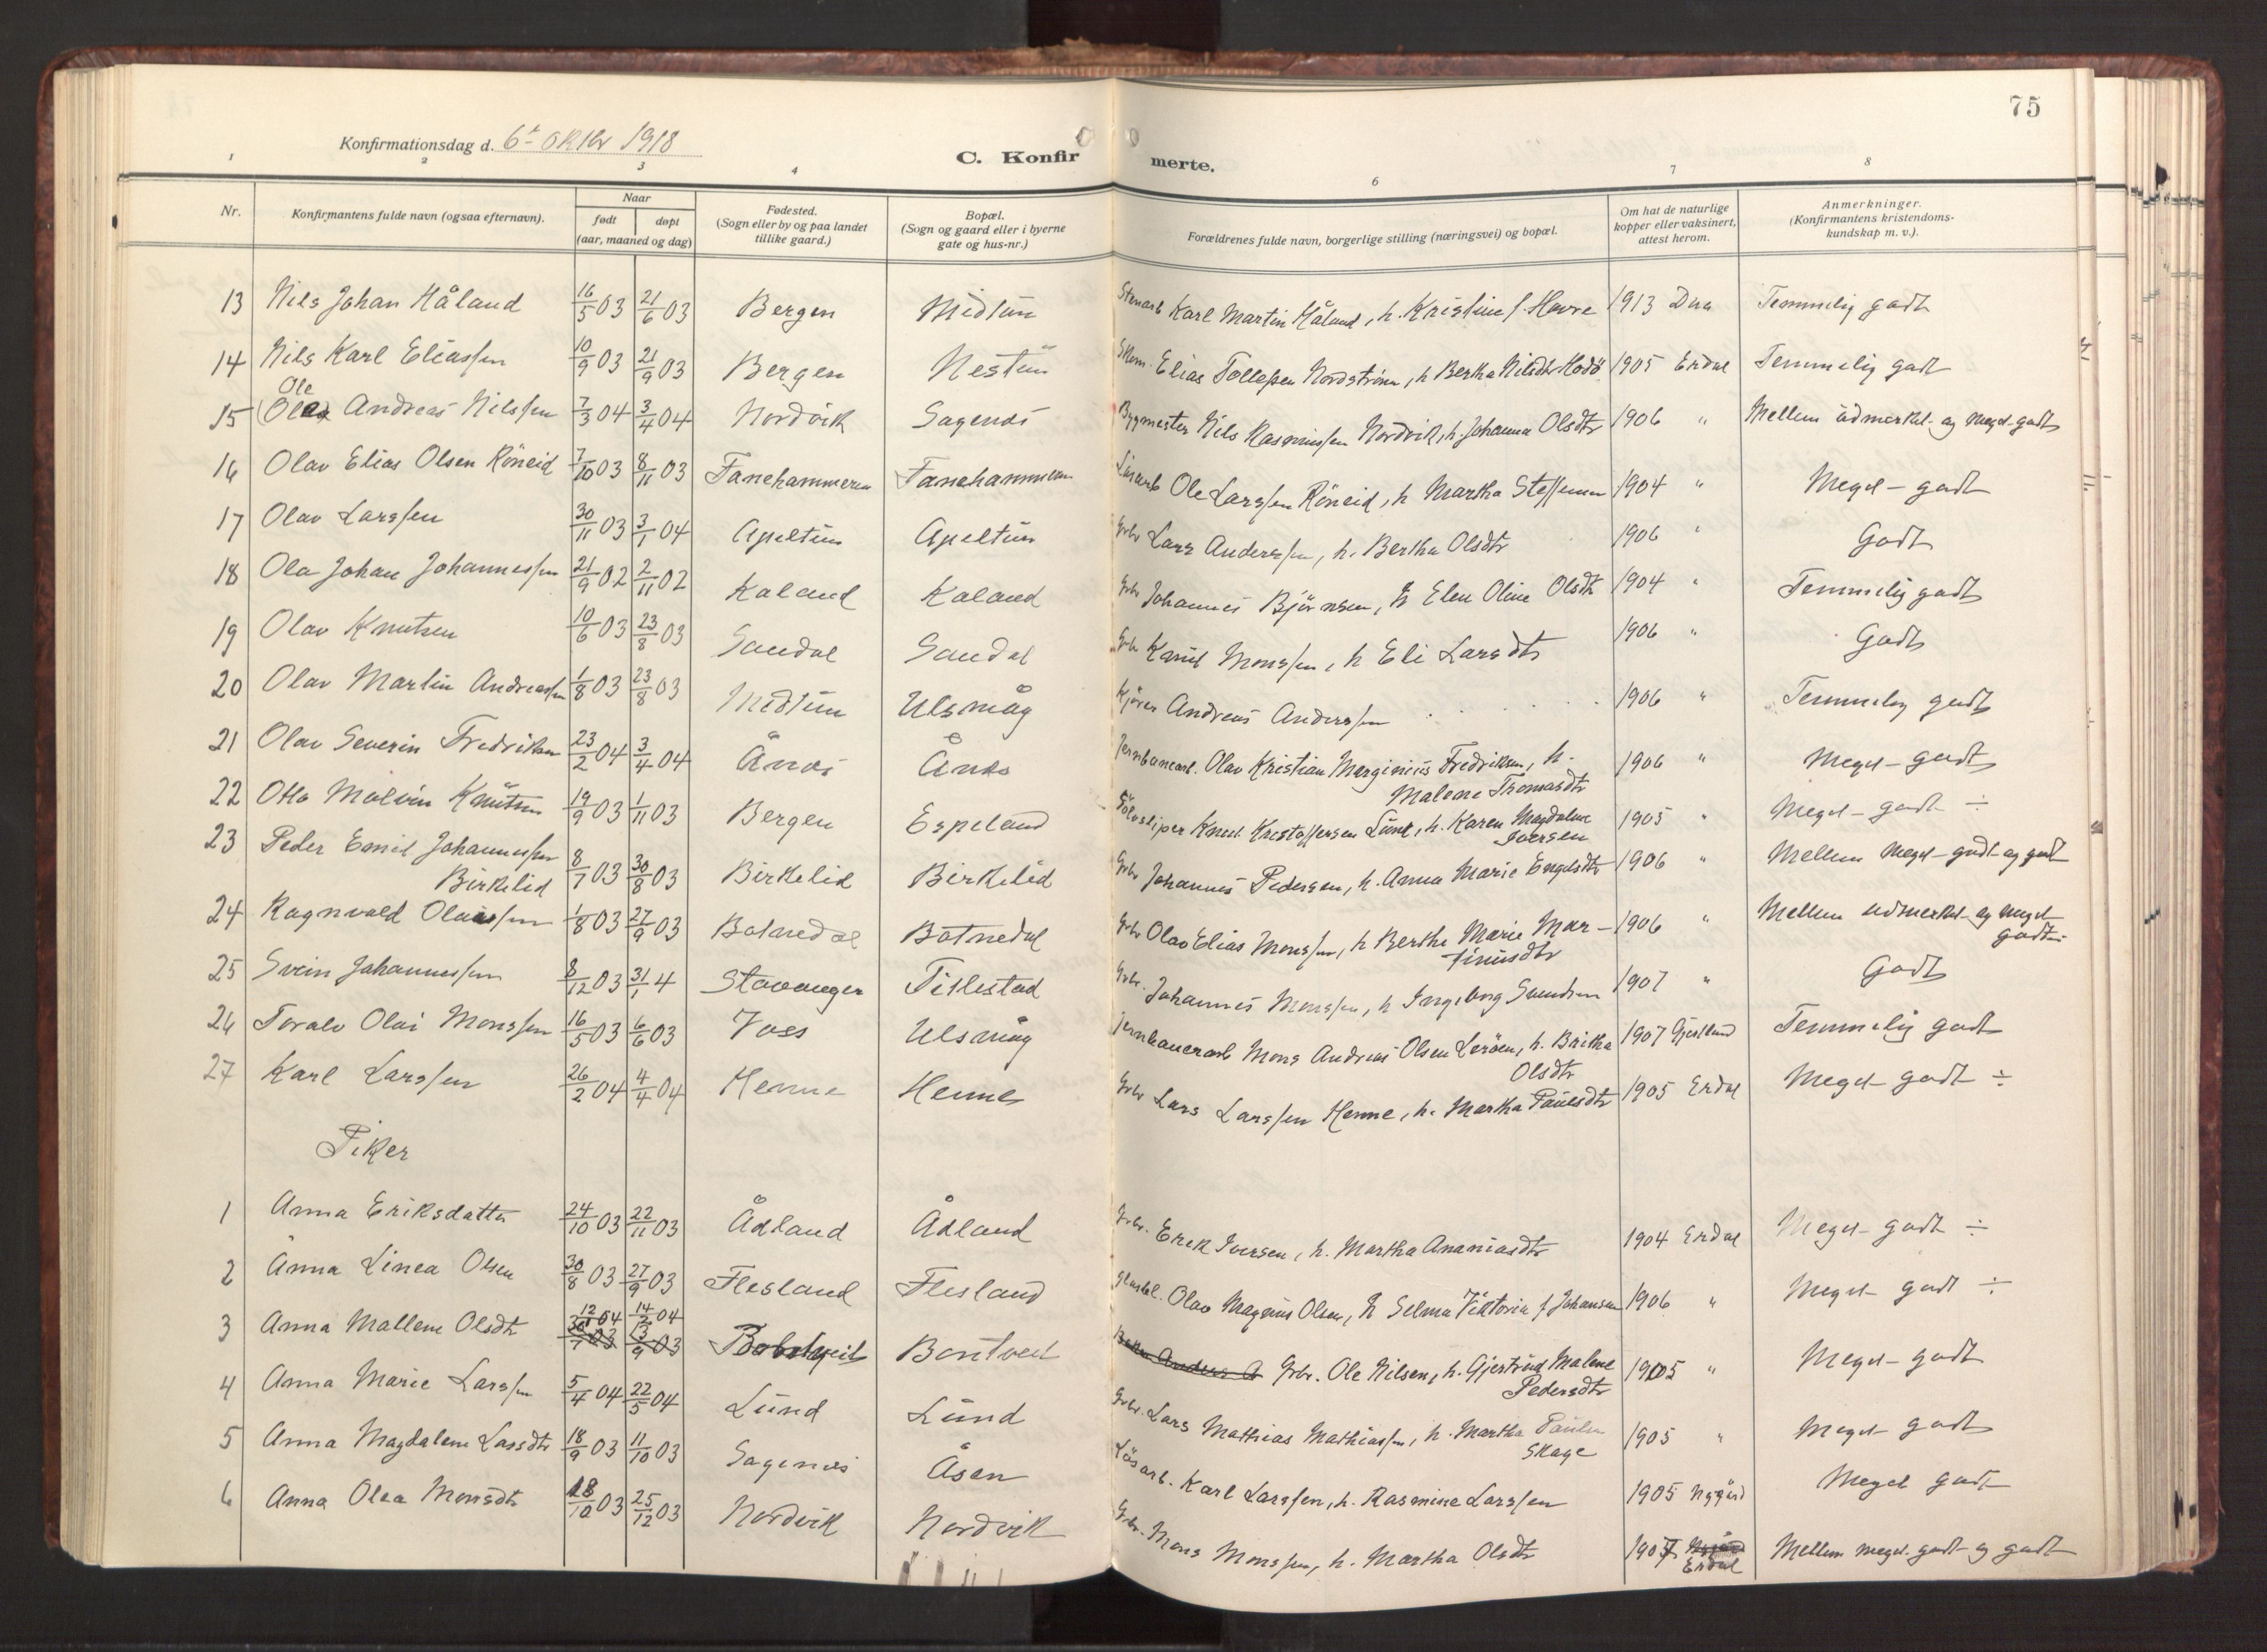 75
Konfirmationsdag d. 6te oktbr 1918
C. Konfir merte.
1 2 3 4 6 7 8
Nr.
Konfirmantens fulde navn (ogsaa efternavn).
Naar
født døpt
(aar, maaned og dag)
Fødested.
(Sogn eller by og paa landet
tillike gaard.)
Bopæl.
(Sogn og gaard eller i byerne
gate og hus-nr.)
Forældrenes fulde navn, borgerlige stilling (næringsvei) og bopæl.
Om hat de naturlige
kopper eller vaksinert,
attest herom.
Anmerkninger.
(Konfirmantens kristendoms-
kundskap m. v.).
13 Nils Johan Håland 16/5 03 21/6 03 Bergen Midtun Stenarb Karl Martin Håland, h. Kristine f. Havre 1913 Temmelig godt
14 Nils Karl Eliassen 10/9 03 21/9 03 Bergen Nestun Elias Tollefsen Nordstrøm, h Bertha Nilsdtr 1905 Erdal Temmelig godt
Ole
15 Andreas Nilssen 7/3 04 3/4 04 Nordvik Sagenes Bygmester Nils Rasmussen Nordvik, h. Johanna Olsdtr 1906 " Mellem udmerket- og Meget-godt
16 Olav Elias Olsen Röneid 7/10 03 8/11 03 Fanehammeren Fanehammeren Lösarb Ole Larssen Röneid, h Martha Steffensen 1904 " Meget-godt
17 Olav Larssen 30/11 03 3/1 04 Apeltun Apeltun Grbr Lars Anderssen, h. Bertha Olsdtr 1906 " Godt
18 Ola Johan Johannessen 21/9 02 2/11 02 Kaland Kaland Grbr Johannes Björnsen, h Elen Oline Olsdtr 1904 " Temmelig godt
19 Olav Knutsen 10/6 03 23/8 03 Sandal Sandal Grbr Knut Monssen, h Eli Larsdtr 1906 " Godt
20 Olav Martin Andreassen 1/8 03 23/8 03 Midtun Ulsmåg Kjörer Andreas Anderssen 1906 " Temmelig godt
21 Olav Severin Fredriksen 23/2 04 3/4 04 Ånes Ånes Jernbanearb. Olav Kristian Merginius Fredriksen, h.
Malene Thomasdtr 1906 " Meget-godt
22 Otto Malvin Knutsen 19/9 03 1/11 03 Bergen Espeland Sölvsliper Knut Kristoffersen Lund, h. Karen Magdalene
Iversen 1905 " Meget-godt ÷
23 Peder Emil Johannessen
Birkelid 8/7 03 30/8 03 Birkelid Birkelid Grbr Johannes Pedersen, h. Anna Marie Engelsdtr 1906 " Mellem Meget-godt og godt
24 Ragnvald Olaissen 1/8 03 27/9 03 Botnedal Botnedal Grbr Olav Elias Monssen, h Berthe Marie Mar-
tinusdtr 1906 " Mellem udmerket og meget-
godt
25 Svein Johannessen 8/12 03 31/1 4 Stavanger Titlestad Grbr. Johannes Monssen, h Ingeborg Svendsen 1907 " Godt
26 Toralv Olai Monssen 16/5 03 6/6 03 Voss Ulsmåg Jernbanearb Mons Andreas Olsen Leröen, h. Britha
Olsdtr 1907 Gjestland Temmelig godt
27 Karl Larssen 26/2 04 4/4 04 Henne Henne Grbr Lars Larssen Henne, h. Martha Paulsdtr 1905 Erdal Meget-godt ÷
Piker
1 Anna Eriksdatter 24/10 03 22/11 03 Ådland Ådland Grbr. Erik Iversen, h. Martha Ananiasdtr 1904 Erdal Meget-godt ÷
2 Anna Linea Olsen 30/8 03 27/9 03 Flesland Flesland Olav Magnus Olsen, h Selma Viktoria f Johansen 1906 " Meget godt ÷
3 Anna Mallene Olsdtr 12/1 04 14/2 04 Bontveit Anders Grbr. Ole Nilsen, h. Gjertrud Malene
Pedersdtr 1905 " Meget-godt
4 Anna Marie Larssen 5/4 04 22/5 04 Lund Lund Grbr. Lars Mathias Mathiassen, h. Martha Paulsen
Skage 1905 " Meget godt
5 Anna Magdalene Larsdtr 18/9 03 11/10 03 Sagenes Åsen Lösarb. Karl Larssen, h. Rasmine Larssen 1905 Nygård Meget godt
6 Anna Olea Monsdtr 18/10 03 25/12 03 Nordvik Nordvik Grbr. Mons Monssen, h. Martha Olsdtr 1907 Nygård
Erdal Mellem meget-godt og godt